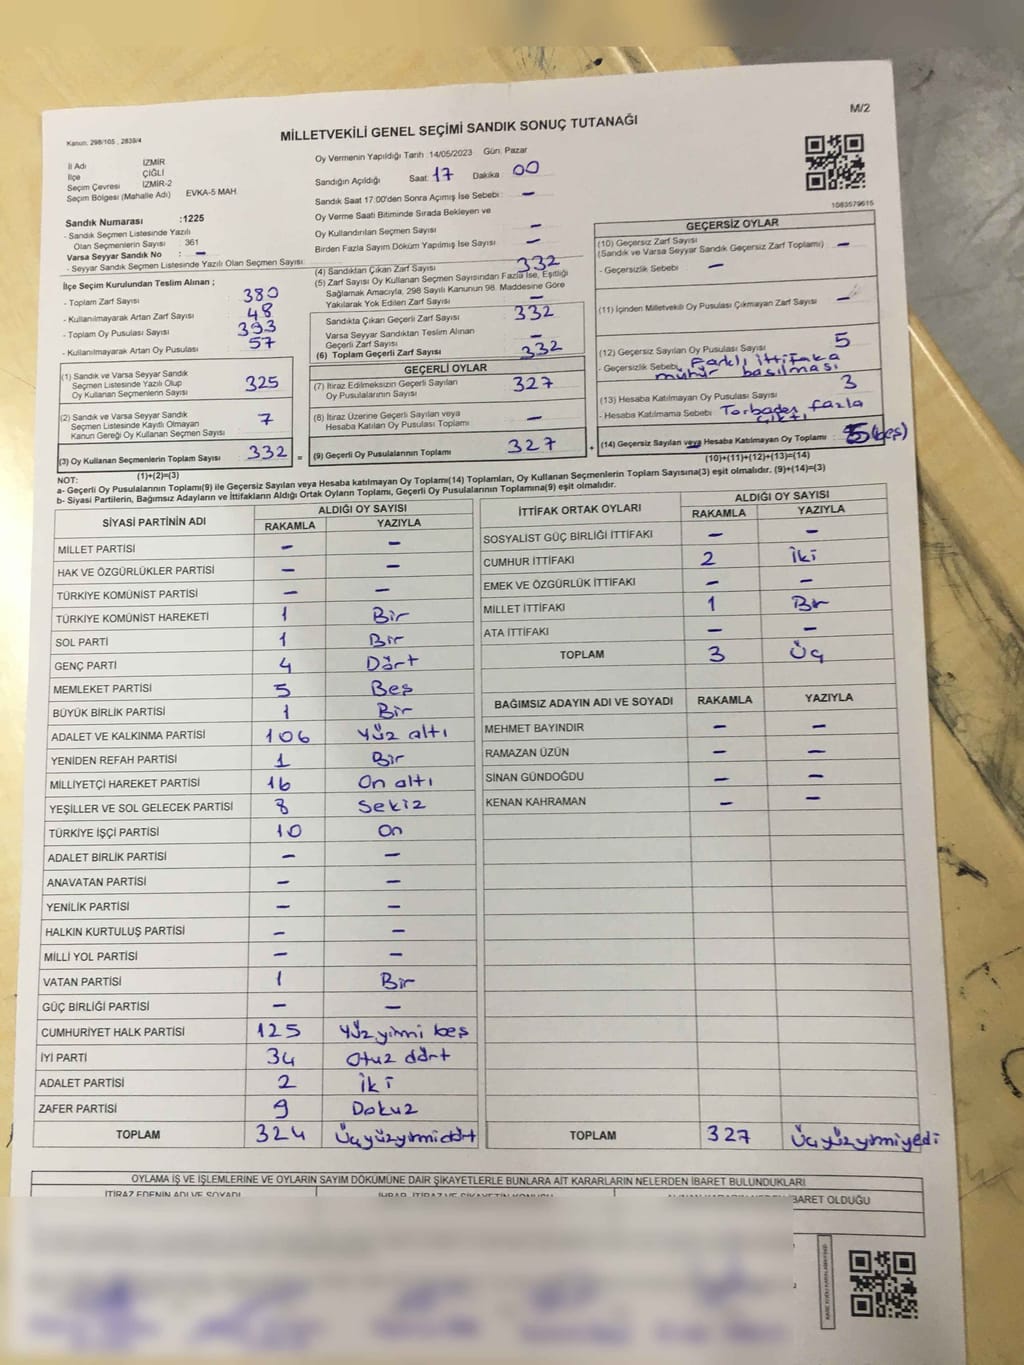 M/2
Kanun: 298/105 , 2839/4
MİLLETVEKİLİ GENEL SEÇİMİ SANDIK SONUÇ TUTANAĞI
İl Adı İZMİR
İlçe ÇİĞLİ
Seçim Çevresi İZMİR-2
Seçim Bölgesi (Mahalle Adı) EVKA-5 MAH
Sandık Numarası :1225
- Sandık Seçmen Listesinde Yazılı
Olan Seçmenlerin Sayısı : 361
Varsa Seyyar Sandık No : –
- Seyyar Sandık Seçmen Listesinde Yazılı Olan Seçmen Sayısı:
Oy Vermenin Yapıldığı Tarih :14/05/2023 Gün: Pazar
Sandığın Açıldığı Saat: 17 Dakika 00
Sandık Saat 17:00'den Sonra Açımış İse Sebebi : –
Oy Verme Saati Bitiminde Sırada Bekleyen ve
Oy Kullandırılan Seçmen Sayısı –
Birden Fazla Sayım Döküm Yapılmış İse Sayısı –
1083579615
İlçe Seçim Kurulundan Teslim Alınan ;
- Toplam Zarf Sayısı 380
- Kullanılmayarak Artan Zarf Sayısı 48
- Toplam Oy Pusulası Sayısı 393
- Kullanılmayarak Artan Oy Pusulası 57
(1) Sandık ve Varsa Seyyar Sandık
Seçmen Listesinde Yazılı Olup
Oy Kullanan Seçmenlerin Sayısı 325
(2) Sandık ve Varsa Seyyar Sandık
Seçmen Listesinde Kayıtlı Olmayan
Kanun Gereği Oy Kullanan Seçmen Sayısı 7
(3) Oy Kullanan Seçmenlerin Toplam Sayısı 332 =
(1)+(2)=(3)
(4) Sandıktan Çıkan Zarf Sayısı 332
(5) Zarf Sayısı Oy Kullanan Seçmen Sayısından Fazla İse, Eşitliği
Sağlamak Amacıyla, 298 Sayılı Kanunun 98. Maddesine Göre
Yakılarak Yok Edilen Zarf Sayısı –
Sandıkta Çıkan Geçerli Zarf Sayısı 332
Varsa Seyyar Sandıktan Teslim Alınan
Geçerli Zarf Sayısı –
(6) Toplam Geçerli Zarf Sayısı 332
GEÇERLİ OYLAR
(7) İtiraz Edilmeksizin Geçerli Sayılan
Oy Pusulalarının Sayısı 327
(8) İtiraz Üzerine Geçerli Sayılan veya
Hesaba Katılan Oy Pusulası Toplamı –
(9) Geçerli Oy Pusulalarının Toplamı 327 +
GEÇERSİZ OYLAR
(10) Geçersiz Zarf Sayısı
(Sandık ve Varsa Seyyar Sandık Geçersiz Zarf Toplamı) –
- Geçersizlik Sebebi : –
(11) İçinden Milletvekili Oy Pusulası Çıkmayan Zarf Sayısı –
(12) Geçersiz Sayılan Oy Pusulası Sayısı 5
- Geçersizlik Sebebi: Farklı ittifaka
mühür basılması
(13) Hesaba Katılmayan Oy Pusulası Sayısı 3
- Hesaba Katılmama Sebebi : Torbadan fazla
çıktı
(14) Geçersiz Sayılan veya Hesaba Katılmayan Oy Toplamı : 5 (beş)
(10)+(11)+(12)+(13)=(14)
NOT:
a- Geçerli Oy Pusulalarının Toplamı(9) ile Geçersiz Sayılan veya Hesaba katılmayan Oy Toplamı(14) Toplamları, Oy Kullanan Seçmenlerin Toplam Sayısına(3) eşit olmalıdır. (9)+(14)=(3)
b- Siyasi Partilerin, Bağımsız Adayların ve İttifakların Aldığı Ortak Oyların Toplamı, Geçerli Oy Pusulalarının Toplamına(9) eşit olmalıdır.
SİYASİ PARTİNİN ADI ALDIĞI OY SAYISI
RAKAMLA YAZIYLA
MİLLET PARTİSİ – –
HAK VE ÖZGÜRLÜKLER PARTİSİ – –
TÜRKİYE KOMÜNİST PARTİSİ – –
TÜRKİYE KOMÜNİST HAREKETİ 1 Bir
SOL PARTİ 1 Bir
GENÇ PARTİ 4 Dört
MEMLEKET PARTİSİ 5 Beş
BÜYÜK BİRLİK PARTİSİ 1 Bir
ADALET VE KALKINMA PARTİSİ 106 Yüz altı
YENİDEN REFAH PARTİSİ 1 Bir
MİLLİYETÇİ HAREKET PARTİSİ 16 On altı
YEŞİLLER VE SOL GELECEK PARTİSİ 8 Sekiz
TÜRKİYE İŞÇİ PARTİSİ 10 On
ADALET BİRLİK PARTİSİ – –
ANAVATAN PARTİSİ – –
YENİLİK PARTİSİ – –
HALKIN KURTULUŞ PARTİSİ – –
MİLLİ YOL PARTİSİ – –
VATAN PARTİSİ 1 Bir
GÜÇ BİRLİĞİ PARTİSİ – –
CUMHURİYET HALK PARTİSİ 125 Yüz yirmi beş
İYİ PARTİ 34 Otuz dört
ADALET PARTİSİ 2 İki
ZAFER PARTİSİ 9 Dokuz
TOPLAM 324 Üçyüzyirmidört
İTTİFAK ORTAK OYLARI ALDIĞI OY SAYISI
RAKAMLA YAZIYLA
SOSYALİST GÜÇ BİRLİĞİ İTTİFAKI – –
CUMHUR İTTİFAKI 2 İki
EMEK VE ÖZGÜRLÜK İTTİFAKI – –
MİLLET İTTİFAKI 1 Bir
ATA İTTİFAKI – –
TOPLAM 3 Üç
BAĞIMSIZ ADAYIN ADI VE SOYADI RAKAMLA YAZIYLA
MEHMET BAYINDIR – –
RAMAZAN ÜZÜN – –
SİNAN GÜNDOĞDU – –
KENAN KAHRAMAN – –
TOPLAM 327 Üçyüzyirmiyedi
OYLAMA İŞ VE İŞLEMLERİNE VE OYLARIN SAYIM DÖKÜMÜNE DAİR ŞİKAYETLERLE BUNLARA AİT KARARLARIN NELERDEN İBARET BULUNDUKLARI
İTİRAZ EDENİN ADI VE SOYADI
BARET OLDUĞU